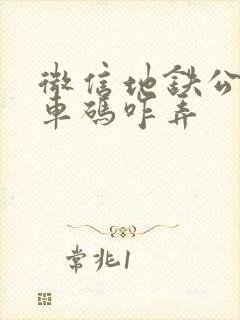 微信地鉄公
車碼咋弄
常兆1